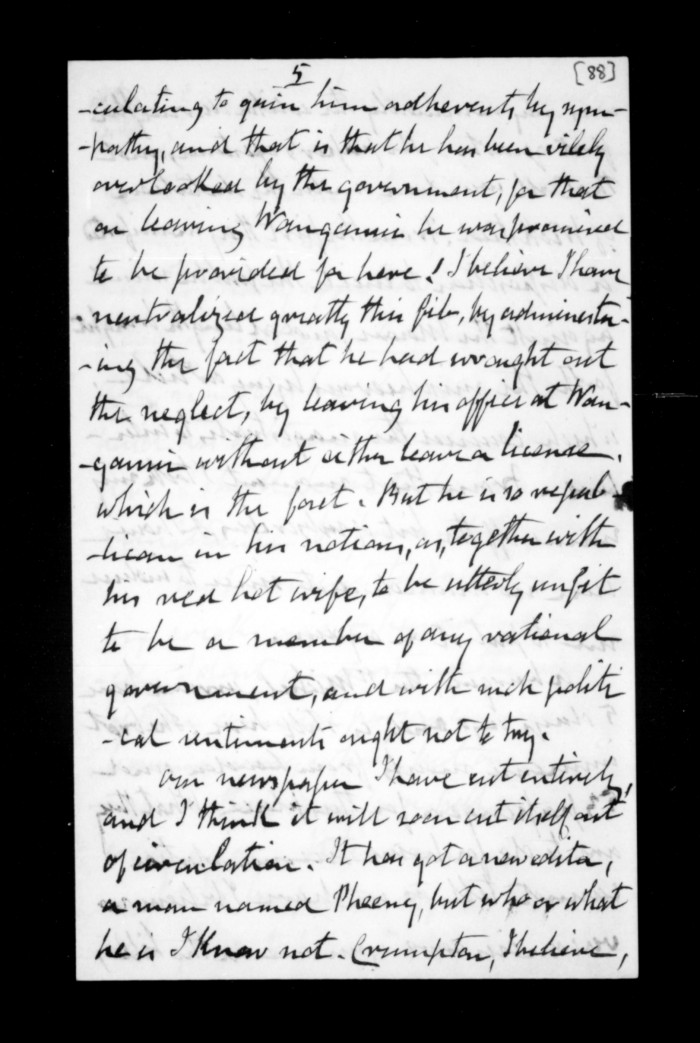 5
[88]
-culating to gain him adherents by sym-
-pathy, and that is that he has been vilely
overlooked by the government, for that
on leaving Wanganui he was promised
to be provided for here! I believe I have
neutralized greatly this fib, by administer-
-ing the fact that he had wrought out
the neglect, by leaving his office at Wan-
-ganui without either leave or license.
which is the fact. But he is so repub-
-lican in his notions, as, together with
his red hot wife, to be utterly unfit
to be a member of any rational
government, and with such politi
-cal sentiments ought not to try.
Our newspaper I have cut entirely,
and I think it will soon cut itself out
of circulation. It has got a new editor,
a man named Pheeney, but who or what
he is I know not. Crompton, I believe,